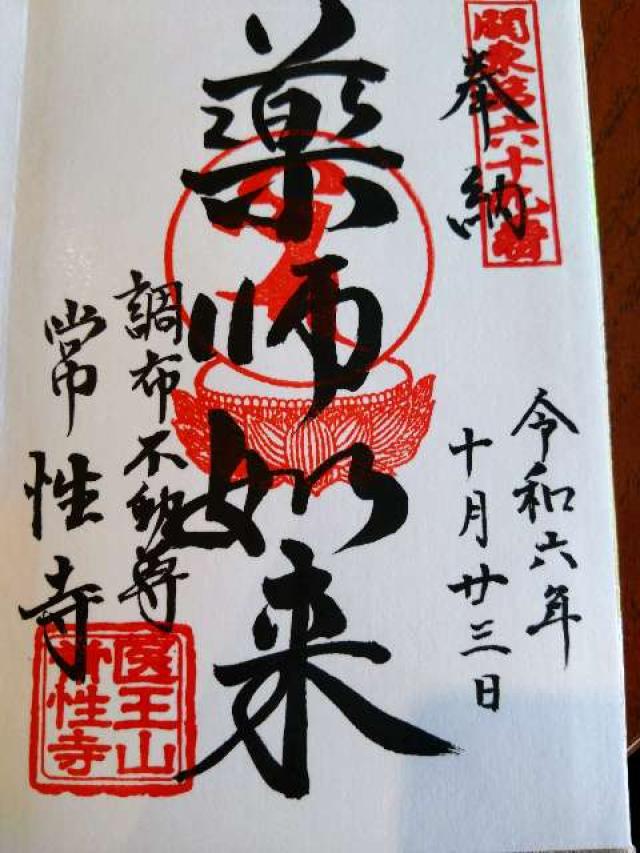 関東第六十九番
奉納
令和六年
十月廿三日
薬師如来
調布不動尊
常性寺
医王山
常性寺